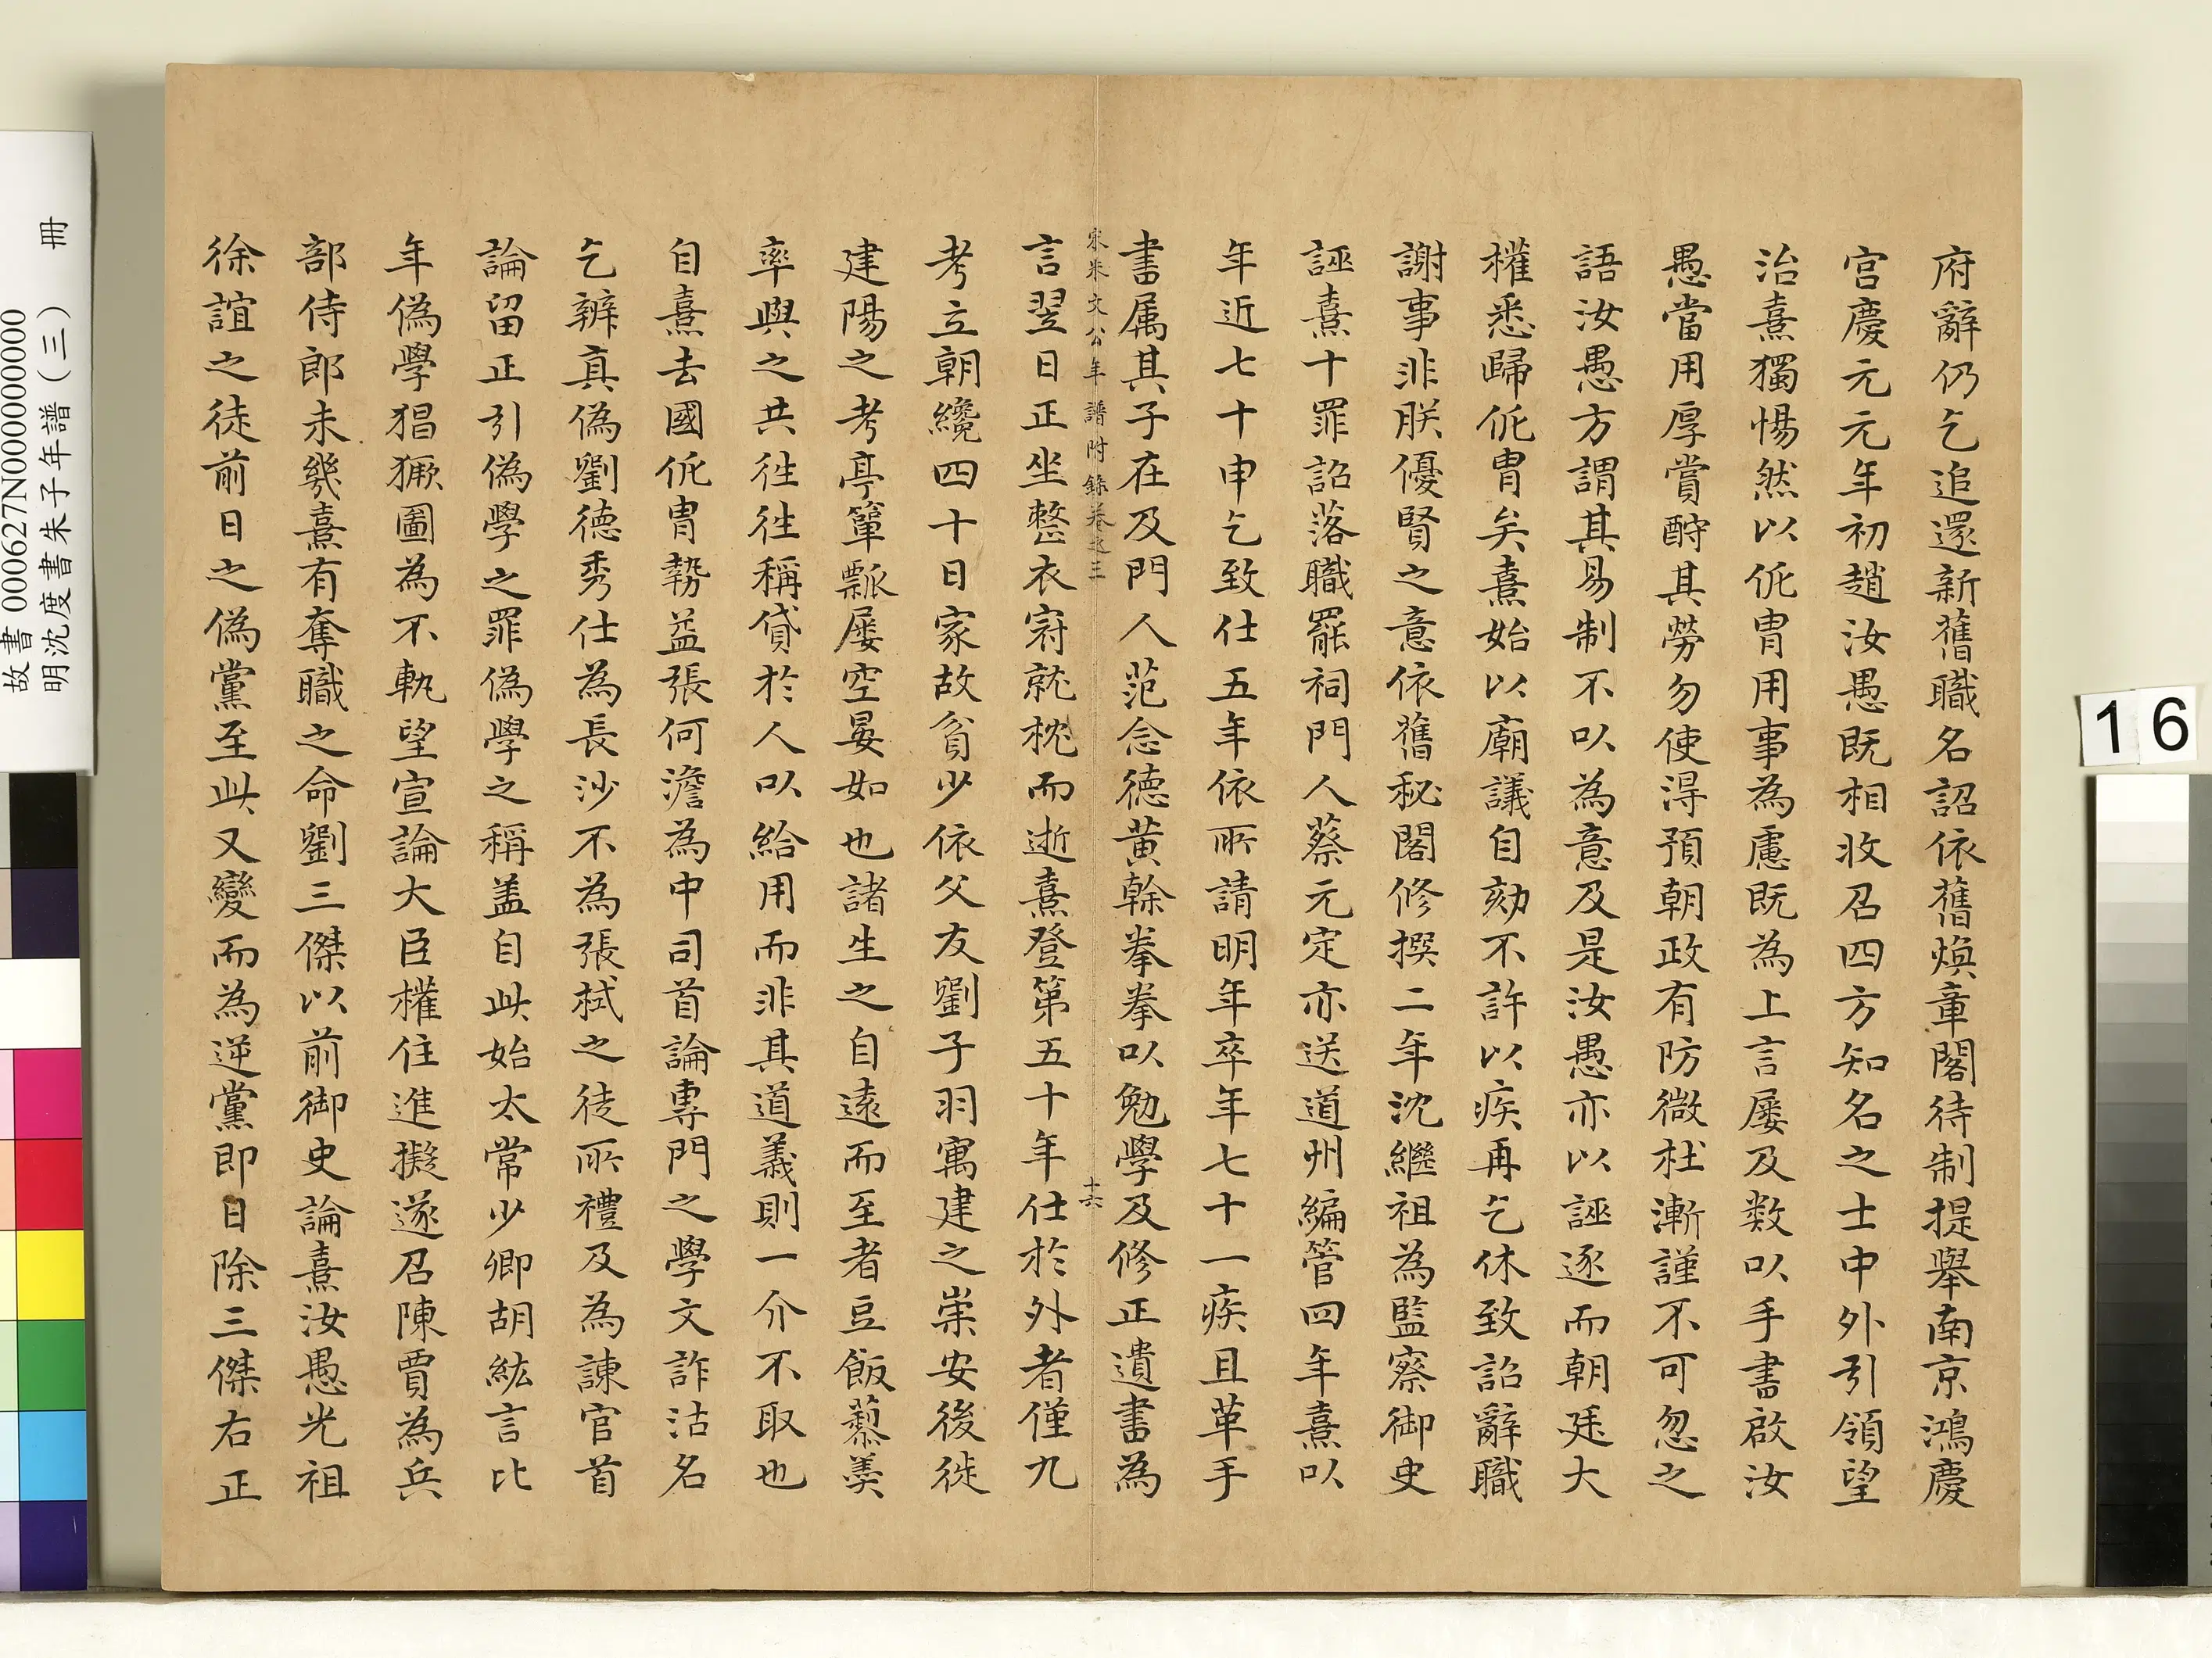 府辭仍乞追還新舊職名詔依舊煥章閣待制提舉南京鴻慶
宮慶元元年初趙汝愚既相收召四方知名之士中外引領望
治熹獨惕然以侂胄用事為慮既為上言屢及數以手書啟汝
愚當用厚賞酧其勞勿使得預朝政有防微杜漸謹不可忽之
語汝愚方謂其易制不以為意及是汝愚亦以誣逐而朝廷大
權悉歸侂胄矣熹始以廟議自劾不許以疾再乞休致詔辭職
謝事非朕優賢之意依舊秘閣修撰二年沈繼祖為監察御史
誣熹十罪詔落職罷祠門人蔡元定亦送道州編管四年熹以
年近七十申乞致仕五年依所請明年卒年七十一疾且革手
書属其子在及門人范念德黃榦拳拳以勉學及修正遺書為
宋朱文公年譜附錄卷之三 十六
言翌日正坐整衣冠就枕而逝熹登第五十年仕於外者僅九
考立朝纔四十日家故貧少依父友劉子羽寓建之崇安後徙
建陽之考亭簞瓢屢空晏如也諸生之自遠而至者豆飯藜羹
率與之共往往稱貸於人以給用而非其道義則一介不取也
自熹去國侂胄勢益張何澹為中司首論專門之學文詐沽名
乞辨真偽劉德秀仕為長沙不為張栻之徒所禮及為諫官首
論留正引偽學之罪偽學之稱盖自此始太常少卿胡紘言比
年偽學猖獗圖為不軌望宣論大臣權住進擬遂召陳賈為兵
部侍郎未幾熹有奪職之命劉三傑以前御史論熹汝愚光祖
徐誼之徒前日之偽黨至此又變而為逆黨即日除三傑右正
故書 000627N000000000
明沈度書朱子年譜(三) 冊
16